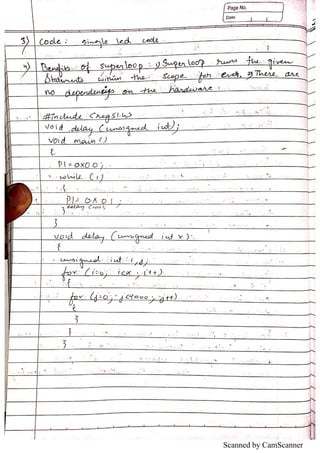 Page No.
Date
3) Code : single led code
4) Benefits of superloop : 1) Super loop runs the given
statements within the scope for ever, 2) There are
no dependencies on the hardware.
#include <reg51.h>
void delay (unsigned int);
void main ()
{
P1=0X00;
while (1)
{
P1= 0X01;
delay (100);
}
}
void delay (unsigned int x)
{
unsigned int i,j;
for (i=0; i<x; i++)
{
for (j=0; j<4000; j++)
{
}
}
}
Scanned by CamScanner